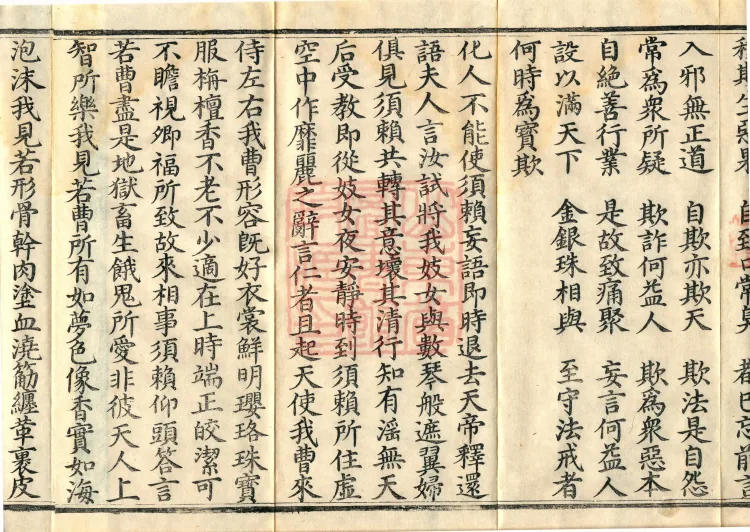 入邪無正道　自欺亦欺天　欺法是自怨
常為衆所疑　欺詐何益人　欺為衆惡本
自絕善行業　是故致痛聚　妄言何益人
設以滿天下　金銀珠相與　至守法戒者
何時為寶欺
化人不能使須賴妄語即時退去天帝釋還
語夫人言汝試將我妓女與數琴般遮翼婦
俱見須賴共轉其意壞其清行知有淫無天
后受教即從妓女夜安靜時到須賴所住虛
空中作靡麗之辭言仁者且起天使我曹來
侍左右我曹形容旣好衣裳鮮明瓔珞珠寶
服栴檀香不老不少適在上時端正皎潔可
不瞻視卿福所致故來相事須賴仰頭荅言
若曹盡是地獄畜生餓鬼所愛非彼天人上
智所樂我見若曹所有如夢色像香實如海
泡沫我見若形骨幹肉塗血澆筋纏革裹皮